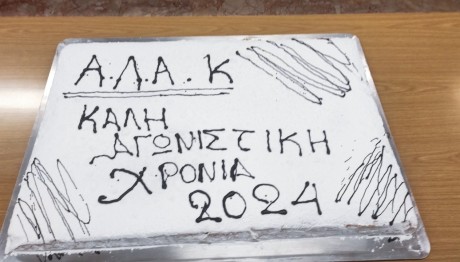 Α.Δ.Α.Κ
ΚΑΛΗ
ΑΓΩΝΙΣΤΙΚΗ
ΧΡΟΝΙΑ
2024